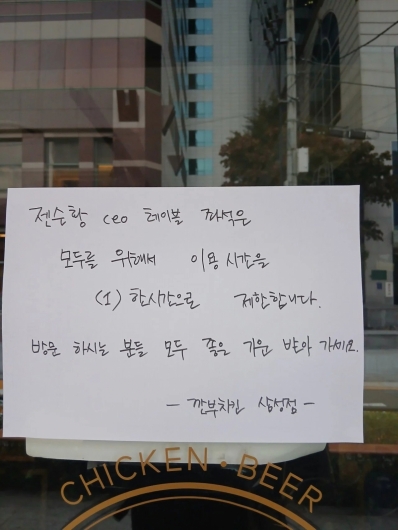 젠슨황 ceo 테이블 좌석은
모두를 위해서 이용시간을
(1) 한시간으로 제한합니다.
방문 하시는 분들 모두 좋은 기운 받아 가세요.
- 깐부치킨 삼성점 -
CHICKEN • BEER